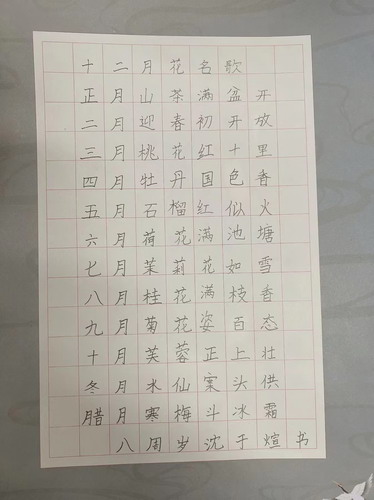 十二月花名歌
正月山茶满盆开
二月迎春初开放
三月桃花红十里
四月牡丹国色香
五月石榴红似火
六月荷花满池塘
七月茉莉花如雪
八月桂花满枝香
九月菊花姿百态
十月芙蓉正上壮
冬月水仙案头供
腊月寒梅斗冰霜
八周岁沈于煊书